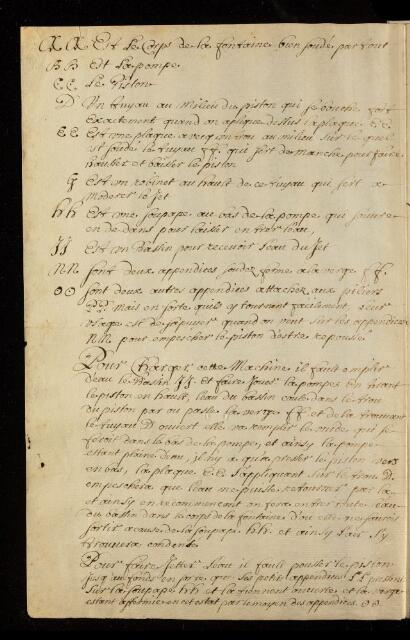 AA Est le Corps de la fontaine bien soudé par tout
BB Est la pompe
CC Le Piston
D Un tuyau au milieu du piston qui se bouche fort
exactement quand on aplique dessus la plaque EE
EE Est une plaque avecq un trou au milieu sur le quel
est soudé le tuyau FF. qui sert de manche pour faire
hausser et baisser le piston
G Est un robinet au hault de ce tuyau qui sert a
moderer le Jet
hh Est une soupape au bas de la pompe qui s'ouvre
en dedans pour laisser entrer l'eau,
JJ Est un Bassin pour recevoir l'eau du Jet
NN sont deux appendices soudez ferme a la verge FF.
OO sont deux autres appendices attachez aux piliers
PP. Mais en sorte qu'ils y tournent facilement, leur
usage est de s'apuyer quand on veut sur les appendices
NN. pour empescher le piston d'estre repoussé
Pour Charger cette Machine il fault emplir
d'eau le Bassin JJ. et faire Jouer la pompe, En tirant
le piston en hault, l'eau du bassin coule dans le trou
du piston par ou passe la verge FF et de la trouvant
le tuyau D ouvert elle va remplir le vuide qui se
feroit dans le bas de la pompe, et ainsy la pompe
estant plaine d'eau, il n'y a qu'a presser le piston vers
en bas, la plaque EE. s'appliquant sur le trou D.
empeschera que l'eau ne puisse retourner par la
et ainsy en recommençant on fera entrer toute l'eau
du bassin dans le corps de la fontaine d'ou elle ne sçauroit
sortir a cause de la soupape hh. et ainsy l'air s'y
trouvera condensé
Pour faire Jetter l'eau il fault pousser le piston
jusqu'au fonds en sorte que ses petits appendices pressent
sur la soupape hh et la tiennent ouverte et la verge
estant affermie en cet estat par le moyen des appendices OO.